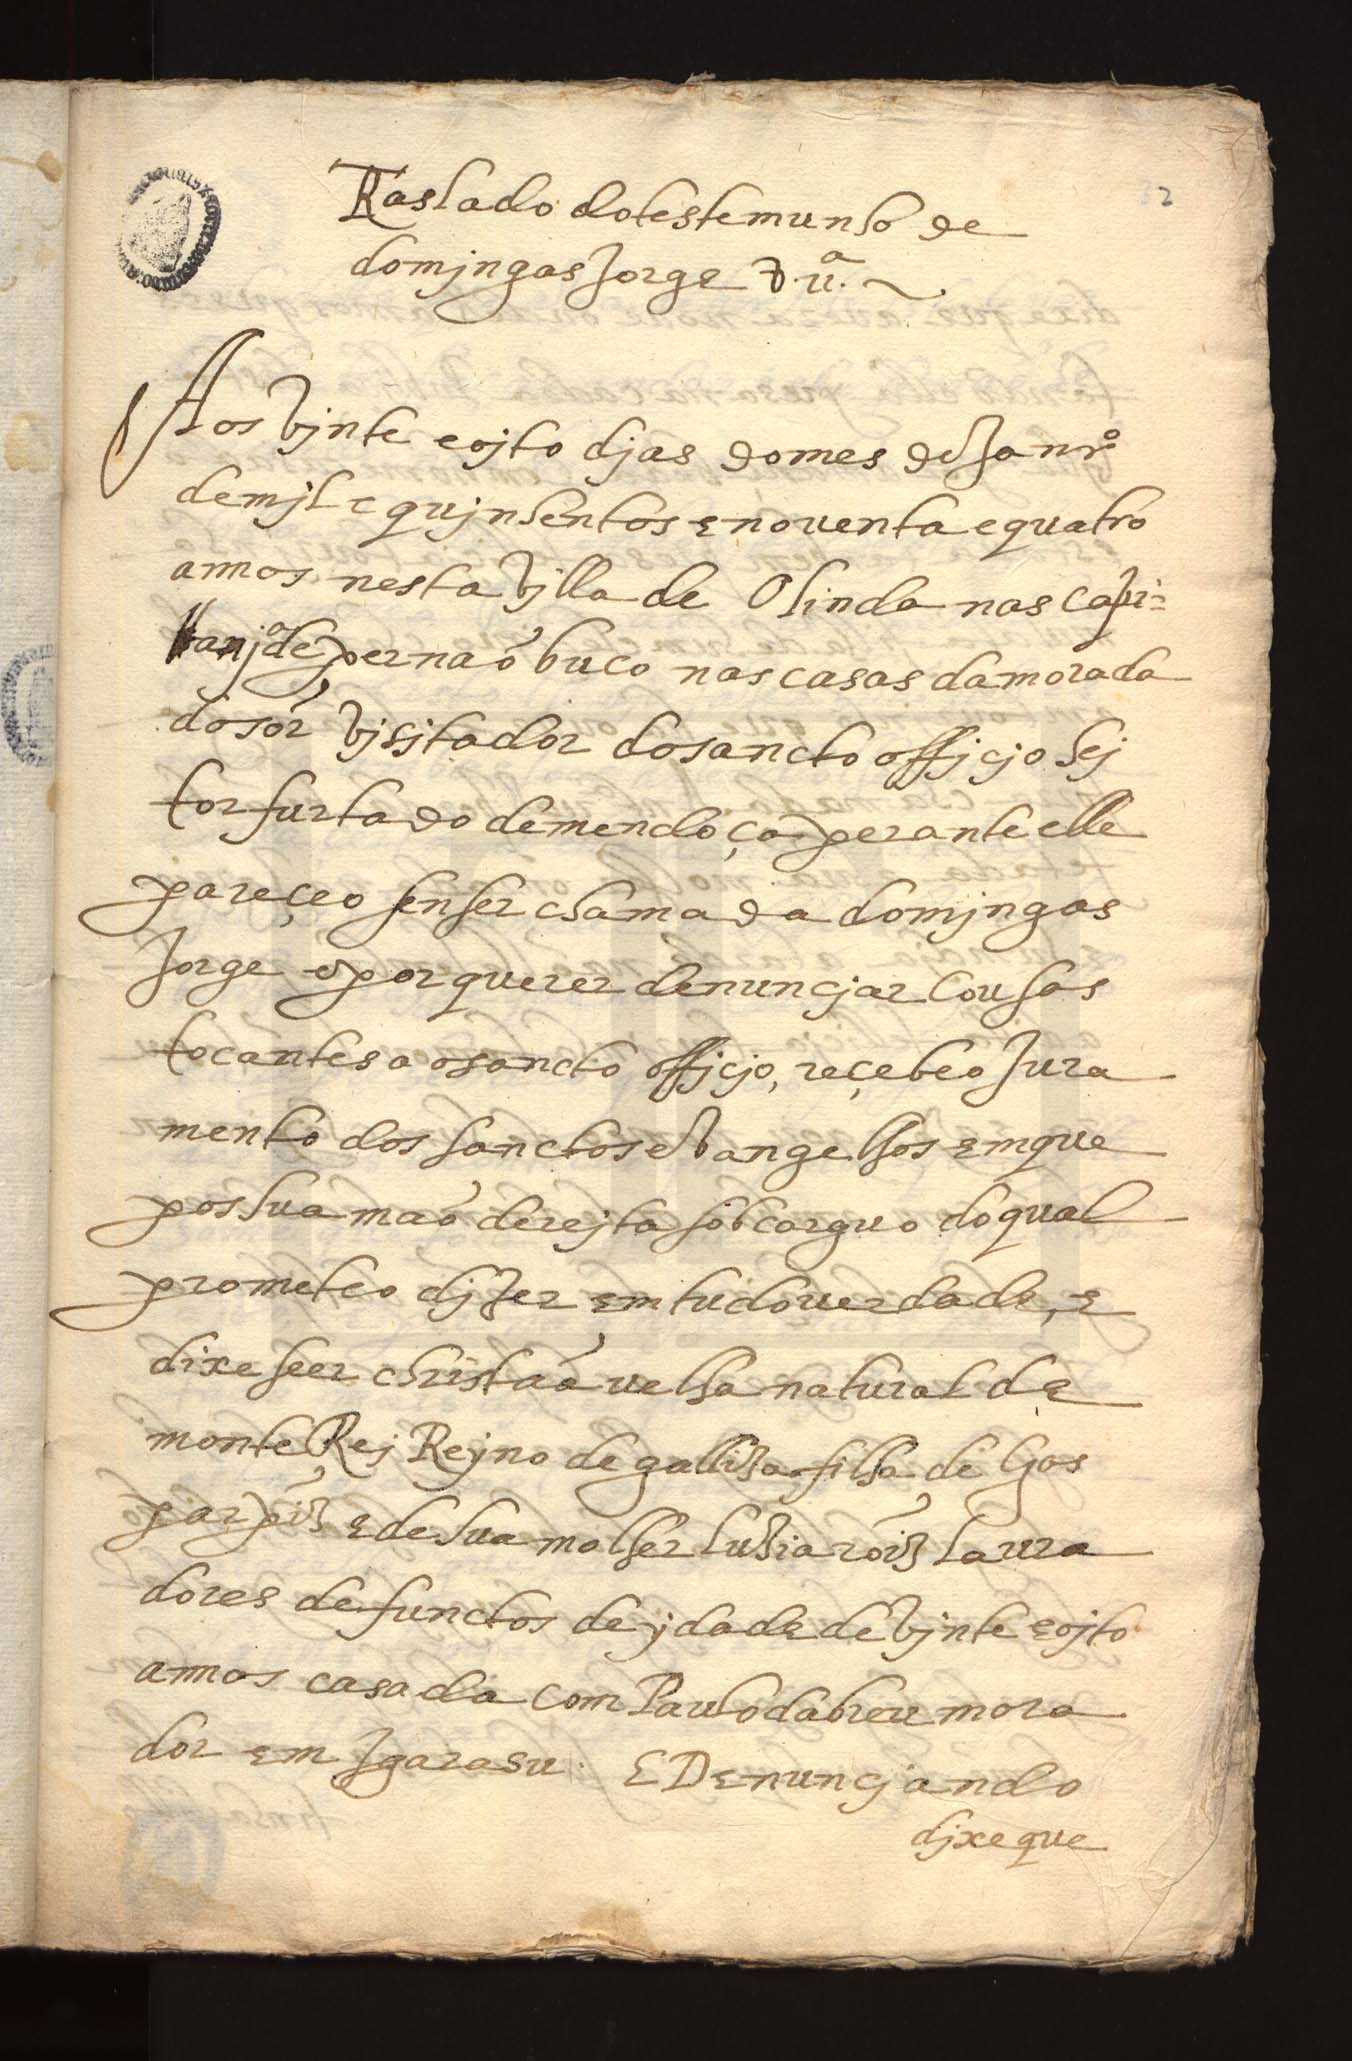 Traslado do testemunho de
domjngas Jorge x. uª.
Aos vjnte e ojto djas do mes de Janrº
de mjl e qujnhentos e noventa e quatro
annos nesta vjlla de Olinda nas capi=
tanjª de pernaõbuco nas casas da morada
do sõr vjsjtador do sancto officjo hej
tor furtado de mendoça perante elle
pareçeo sen ser chamada domjngas
Jorge e por querer denuncjar cousas
tocantes ao sancto officjo, reçebeo Jura
mento dos sanctos evangelhos em que
pos sua maõ derejta sob carguo do qual
prometeo djzer em tudo verdade, e
dixe seer christaã velha natural de
monte Rej Reyno de galliza filha de Gas
par piz e de sua molher luzia roiz laura
dores defunctos de ydade de vjnte e ojto
annos casada com Paulo dabreu mora
dor em Jgarasu. E Denuncjando
djxe que